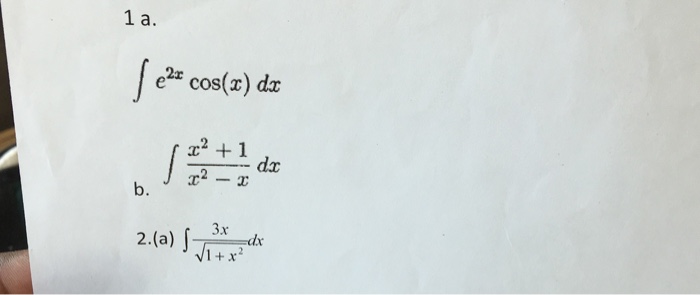 1 a.
∫ e^{2x} cos(x) dx
b. ∫ \frac{x^2 + 1}{x^2 - x} dx
2.(a) ∫ \frac{3x}{\sqrt{1 + x^2}} dx